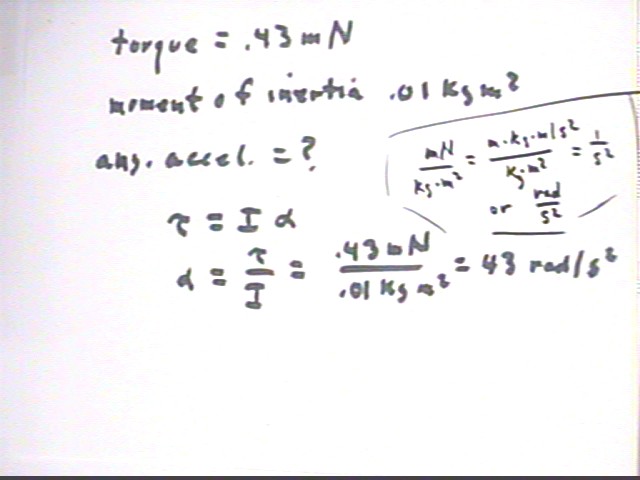 torque = .43 mN
moment of inertia .01 kg m²
ang. accel. = ?
mN / kg·m² = m·kg·m/s² / kg·m² = 1/s²
or rad/s²
τ = I α
α = τ/I = .43 mN / .01 kg m² = 43 rad/s²